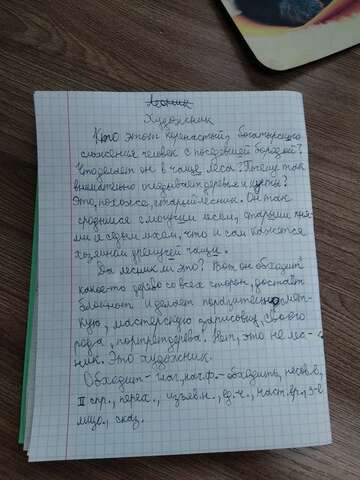 Лесник
Художник
Кто этот коренастый, богатырского
сложения человек с поседевшей бородой?
Что делает он в чаще леса? Почему так
внимательно оглядывает деревья и кусты?
Это, похоже, старый лесник. Он так
сроднился с могучим лесом, старыми пня-
ми и седым мхом, что и сам кажется
хозяином дремучей чащи.
Да лесник ли это? Вот он обходит
какое-то дерево со всех сторон, достаёт
блокнот и делает поразительную
кую, мастерскую зарисовку, своего
рода, портрет дерева. Нет, это не лес-
ник. Это художник.
Обходит - глаг., нач.ф. - обходить, несов.в,
II спр., перех., изъяв.н., ед.ч., наст.вр., 3-е
лицо, сказ.